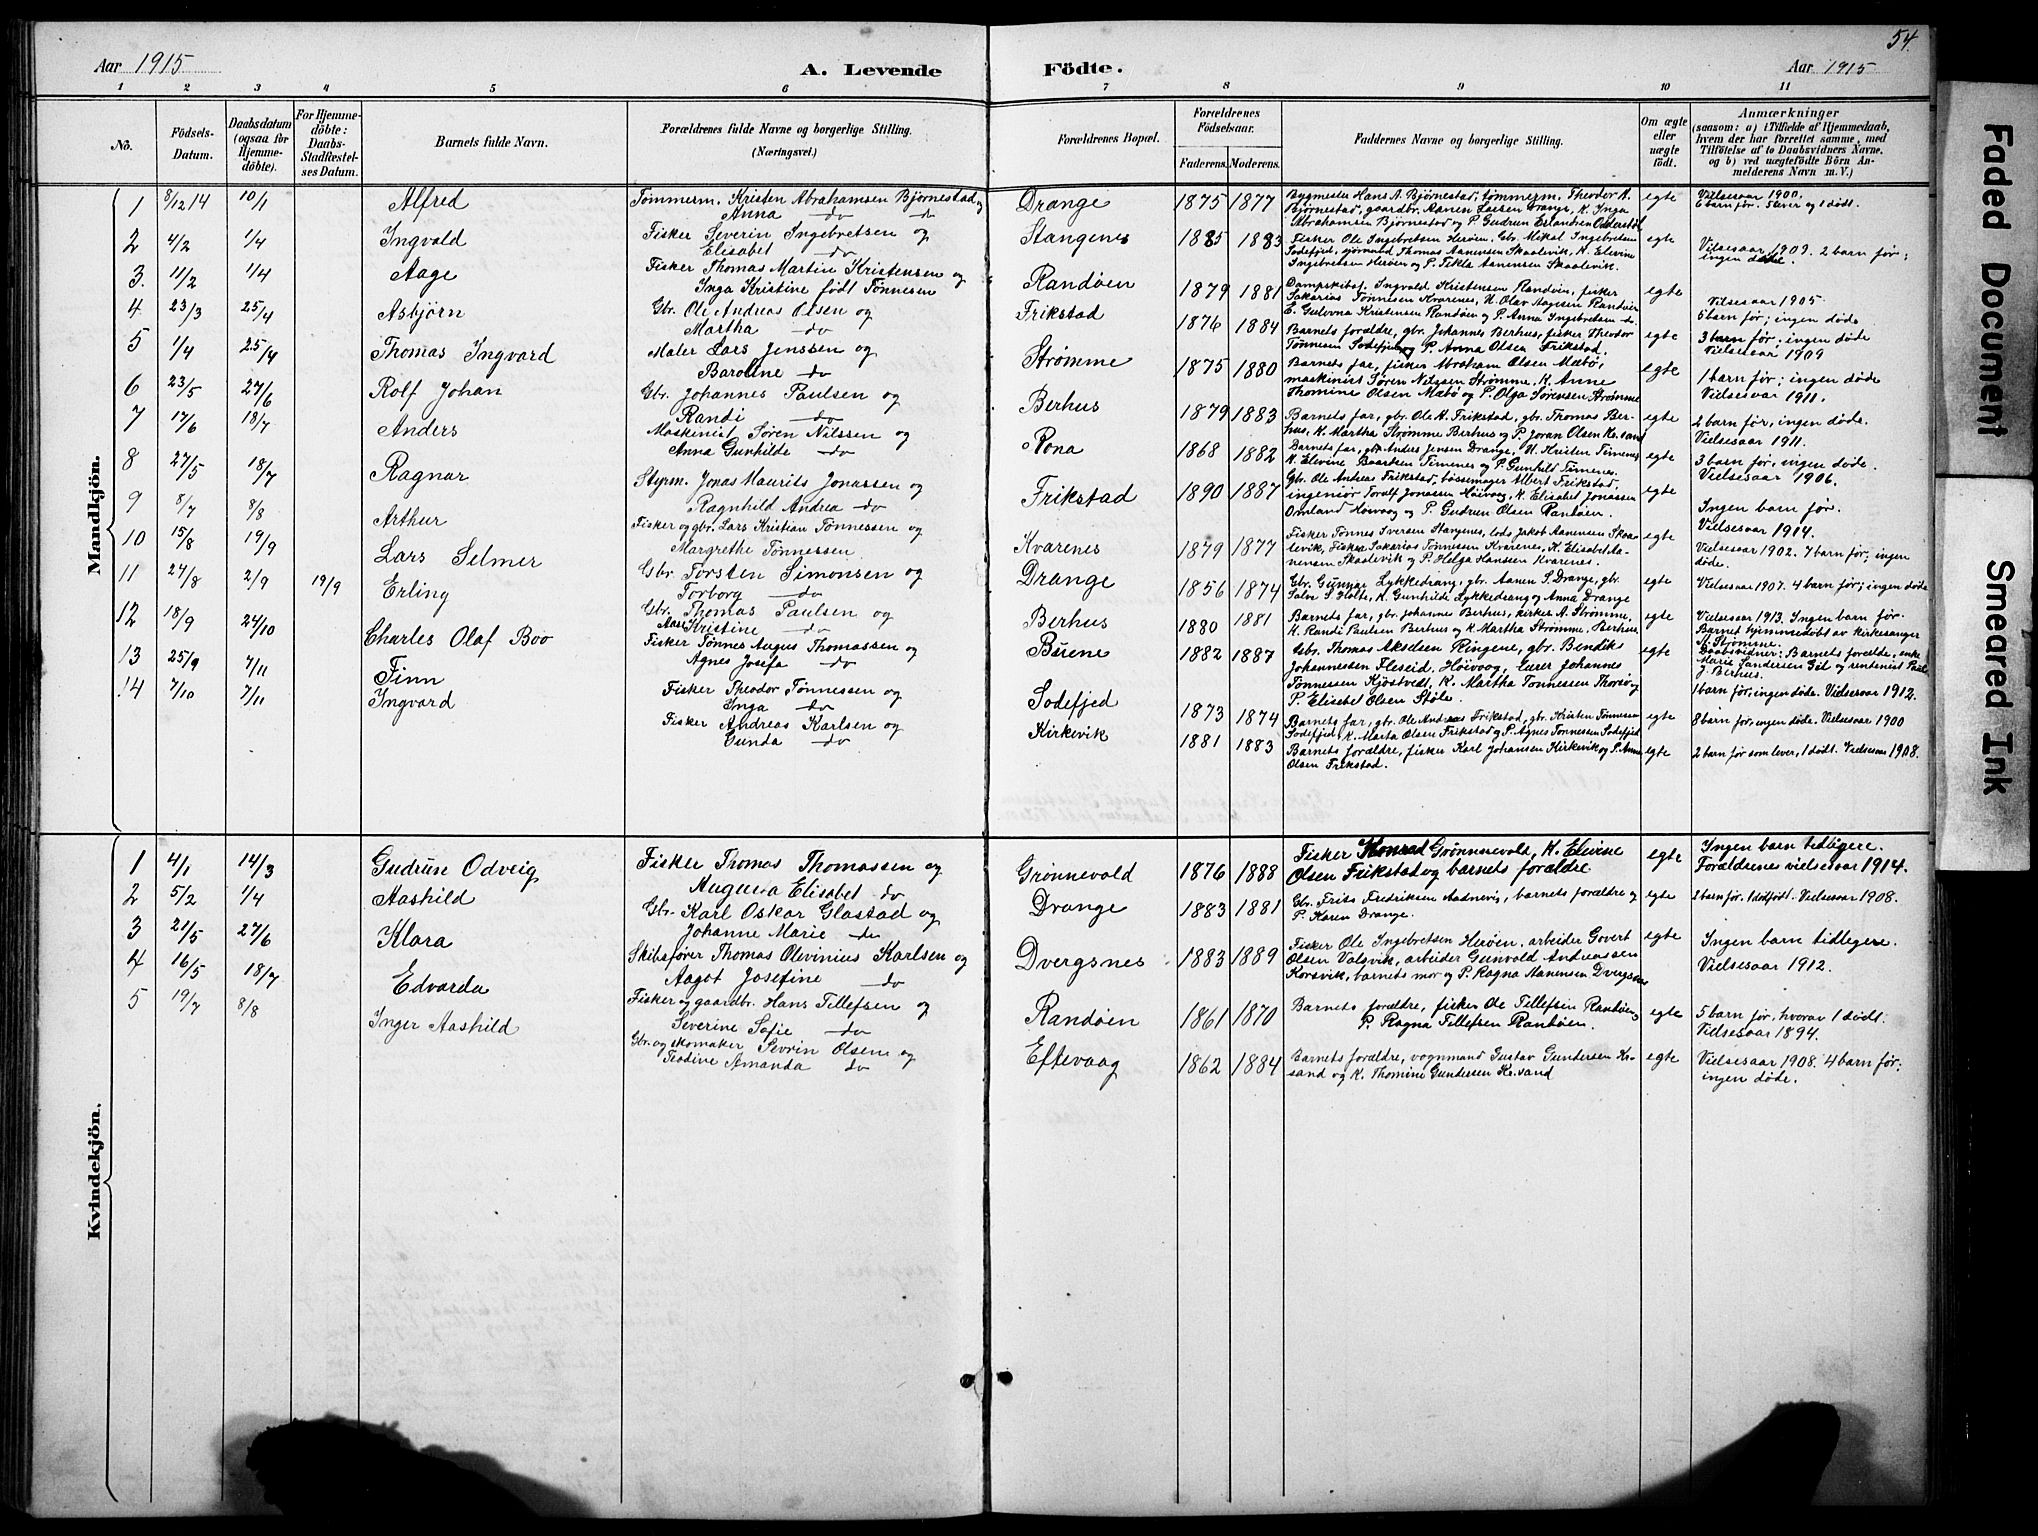 54.
Aar 1915 A. Levende Födte. Aar 1915
1 2 3 4 5 6 7 8 9 10 11
No. Födsels-Datum. Daabsdatum (ogsaa för Hjemmedöbte). For Hjemmedöbte: Daabs-Stadfæstelses Datum. Barnets fulde Navn. Forældrenes fulde Navne og borgerlige Stilling. (Næringsvei.) Forældrenes Bopæl. Forældrenes Födselsaar. Faderens. Moderens. Faddernes Navne og borgerlige Stilling. Om ægte eller uægte födt. Anmærkninger
(saasom: a) i Tilfælde af Hjemmedaab, hvem der har forrettet samme, med Tilföielse af to Daabsvidners Navne, og b) ved uægtefödte Börn Anmelderens Navn m. V.)
Mandkjön.
1 8/12 14 10/1 Alfred Tømmerm. Kristen Abrahamsen Bjørnestad og Anna do do Drange 1875 1877 Bygmester Hans A. Bjørnestad, tømmerm. Theodor A. Bjørnestad, gaardbr. Aanen Larsen Drange, K. Inga Abrahamsen Bjørnestad og P. Gudrun egte Vielsesaar 1900. 6 barn før. 5 lever og 1 dødt.
2 4/2 1/4 Ingvald Fisker Severin Ingebretsen og Elisabet do Stangenes 1885 1883 Fisker Ole Ingebretsen Herøen, Gbr. Mikal Ingebretsen Sodefjed, sjømand Thomas Aanensen Skaalevik, K. Elevine Ingebretsen Herøen og P. Tekla Aanensen Skaalevik. egte Vielsesaar 1909. 2 barn før; ingen døde.
3. 11/2 1/4 Aage Fisker Thomas Martin Kristensen og Inga Kristine født Tønnesen Randøen 1879 1881 Dampskibst. Ingvald Kristensen Randøen, fisker Sakarias Tønnesen Kvarenes, U. Olav Aagesen Randøen E. Gulovna Kristensen Randøen og P. Anna Ingebretsen do. egte Vielsesaar 1905. 5 barn før; ingen døde
4 23/3 25/4 Asbjörn Gbr. Ole Andreas Olsen og Martha do Frikstad 1876 1884 Barnets forældre, gbr. Johannes Berhus, fisker Theodor Tønnesen Sodefjed og P. Anna Olsen Frikstad. egte 3 barn før; ingen døde Vielsesaar 1909
5 1/4 25/4 Thomas Ingvard Maler Lars Jenssen og Baroline do Strømme 1875 1880 Barnets far, fisker Abraham Olsen Mæbø, maskinist Søren Nilssen Strømme, K. Anne Thomine Olsen Mæbø og P. Olga Sørensen Strømme egte 1 barn før; ingen døde Vielsesaar 1911.
6 23/5 27/6 Rolf Johan Gbr. Johannes Paulsen og Randi do Berhus 1879 1883 Barnets far, gbr. Ole K. Frikstad, gbr. Thomas Berhus, K. Martha Strømme Berhus og P. Joran Olsen Kr.sand egte 2 barn før, ingen døde. Vielsesaar 1911.
7 17/6 18/7 Anders Maskinist Søren Nilssen og Anna Gunhilde do Rona 1868 1882 Barnets far, gbr. Anders Jensen Drange, U. Kristen Timenes K. Elevine Baardsen Timenes og P. Gunhild Timenes. egte 3 barn før, ingen døde. Vielsesaar 1906.
8 27/5 18/7 Ragnar Styrm. Jonas Maurits Jonassen og Ragnhild Andrea do Frikstad 1890 1887 Gbr. Ole Andreas Frikstad, bøssemager Albert Frikstad, ingeniør Toralf Jonassen Høivaag, K. Elisabet Jonassen Omland Høivaag og P. Gudrun Olsen Randøen. egte Ingen barn før. Vielsesaar 1914.
9 8/7 8/8 Arthur Fisker og gbr. Lars Kristian Tønnessen og Margrethe Tønnessen Kvarenes 1879 1877 Fisker Tønnes Iversen Stangenes, lods Jakob Aanensen Skaalevik, Fisker Sakarias Tønnesen Kvarenes, K. Elisabet Aanensen Skaalevik og P. Helga Hansen Kvarenes. egte Vielsesaar 1902. 7 barn før, ingen døde.
10 15/8 19/9 Lars Selmer Gbr. Torsten Simonsen og Torborg do Drange 1856 1874 Gbr. Gunnar Lykkedrang, gbr. Aanen S. Drange, gbr. Salve S. Holte, K. Gunhilde Lykkedrang og Anna Drange egte Vielsesaar 1907. 4 barn før; ingen døde
11 27/8 2/9 19/9 Erling Gbr. Thomas Paulsen og Aase Kristine do Berhus 1880 1881 Barnets far, gbr. Johannes Berhus, kirkes. A. Strømme, K. Randi Paulsen Berhus og K. Martha Strømme, Berhus egte Vielsesaar 1913. Ingen barn før. Barnet hjemmedøbt av kirkesanger A. Strømme. Daabsvidner: Barnets forældre, enke Marie Sandersen Gil og rentenist Paul J. Berhus.
12 18/9 24/10 Charles Olaf Boo Fisker Tønnes Augus Thomassen og Agnes Josefa do Buene 1882 1887 Gbr. Thomas Akselsen Ringene, gbr. Bendiks Johannessen Fleseid, Høivaag, Eurer Johannes Tønnessen Kjøstvedt, K. Martha Tønnessen Thorsø og P. Elisebe Olsen Støle. egte 1 barn før, ingen døde. Vielsesaar 1912.
13 25/9 7/11 Finn Fisker Theodor Tønnessen og Inga do Sodefjed 1873 1874 Barnets far, gbr. Ole Andreas Frikstad, gbr. Kristen Tønnesen Sodefjed, K. Marta Olsen Frikstad og P. Agnes Tønnesen Sodefjed egte 8 barn før, ingen døde. Vielsesaar 1900
14 7/10 7/11 Ingvard Fisker Andreas Karlsen og Gunda do Kirkevik 1881 1883 Barnets forældre, fisker Karl Johansen Kirkevik og P. Anna Olsen Frikstad. egte 2 barn før som lever, 1 dødt. Vielsesaar 1908.
Kvindekjön.
1 4/1 14/3 Gudrun Odveig Fisker Thomas Thomassen og Augusta Elisabet do Grønnevold 1876 1888 Fisker Konrad Grønnevold, K. Elevine Olsen Frikstad og barnets forældre egte Ingen barn tidligere. Forældrenes vielsesaar 1914.
2 5/2 1/4 Aashild Gbr. Karl Oskar Glastad og Johanne Marie do Drange 1883 1881 Gbr. Frits Fredriksen Aadnevig, barnets forældre og P. Karen Drange. egte 2 barn før. 1 dødfødt. Vielsesaar 1908.
3 21/5 27/6 Klara Skibsfører Thomas Olevinius Karlsen og Aagot Josefine do Dvergsnes 1883 1889 Fisker Ole Ingebretsen Herøen, arbeider Govert Olsen Valsvik, arbeider Gunvald Andreassen Korsvik, barnets mor og P. Ragna Aanensen Dvergsnes egte Ingen barn tidligere. Vielsesaar 1912.
4 16/5 18/7 Edvarda Fisker og gaardbr. Hans Tellefsen og Severine Sofie do Randøen 1861 1870 Barnets forældre, fisker Ole Tellefsen Randøen, P. Ragna Tellefsen Randøen. egte 5 barn før, hvorav 1 dødt. Vielsesaar 1894.
5 19/7 8/8 Inger Aashild Gbr. og skomaker Sevrin Olsen og Teodine Amanda do Eftevaag 1862 1884 Barnets forældre, vognmand Gustav Gundersen Kr.sand og K. Thomine Gundersen Kr.sand egte Vielsesaar 1908. 4 barn før; ingen døde.
Faded Document
Smeared Ink